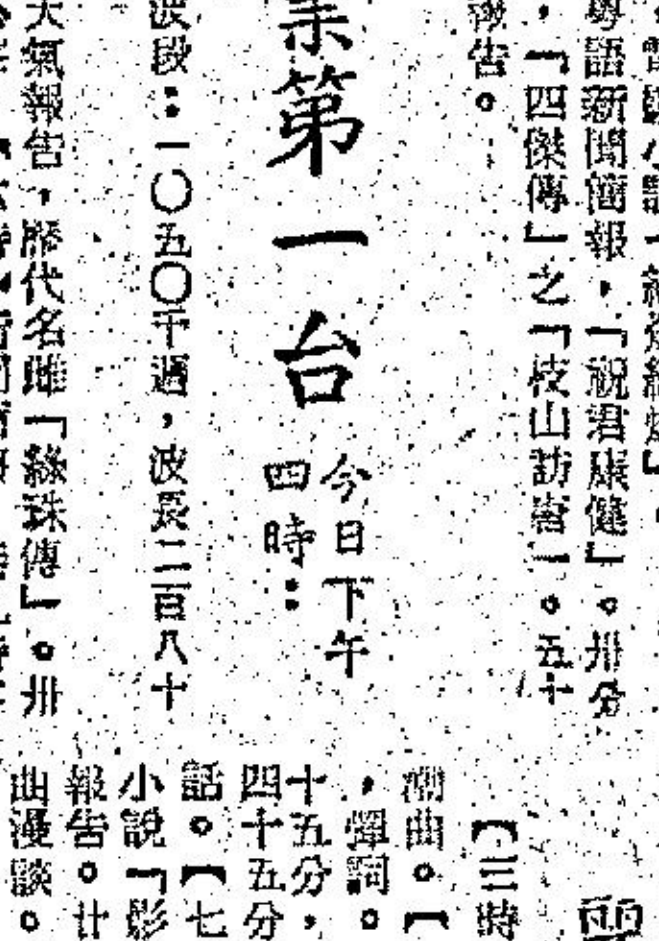 粵語新聞簡報，「祝君康健」。卅分
，「四傑傳」之「枝山訪唐」。五十
報告。
第一台
今日下午
四時：
波段：一〇五〇千週，波長二百八十
天氣報告，歷代名雌「綠珠傳」。卅
【三時
潮曲。【
，彈詞。
十五分，
四十五分，
話。【七
小說「影
報告。廿
曲漫談。